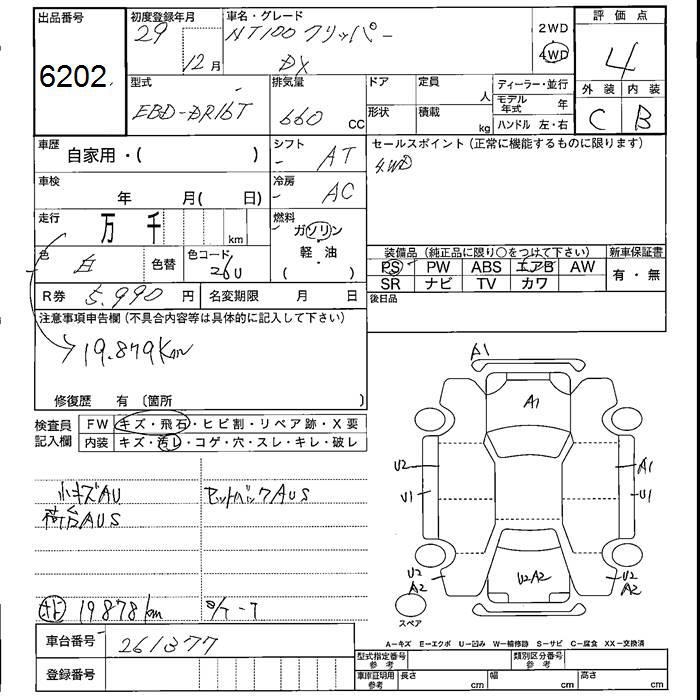 出品番号 初度登録年月 車名・グレード 評価点
6202 29 12月 NT100クリッパー DX 2WD 4WD 4
型式 排気量 ドア 定員 人 ディーラー・並行 外装 内装
EBD-DR16T 660 CC 形状 積載 kg モデル年式 年 C B
ハンドル 左・右
車歴 自家用・( ) シフト AT セールスポイント(正常に機能するものに限ります)
4WD
車検 年 月( 日) 冷房 AC
走行 万 千 km 燃料 ガソリン
軽・油
( )
色 白 色替 色コード 26U
装備品(純正品に限り○をつけて下さい) 新車保証書
PS PW ABS エアB AW 有・無
SR ナビ TV カワ
R券 5.990 円 名変期限 月 日 後日品
注意事項申告欄(不具合内容等は具体的に記入して下さい)
19.879Km
修復歴 有 〔箇所 〕
検査員記入欄 FW キズ・飛石・ヒビ割・リペア跡・X要
内装 キズ・汚レ・コゲ・穴・スレ・キレ・破レ
小キズAU セットバックAUS
荷台AUS
19.878km
A1
A1
U2 A1
U1 U1
U2 A2 U2A2 U2 A2
スペア
A―キズ E―エクボ U―凹み W―補修跡 S―サビ C―腐食 XX―交換済
車台番号 261377
登録番号
型式指定番号 参考 類別区分番号 参考
車庫証明用 参考 長さ cm 幅 cm 高さ cm